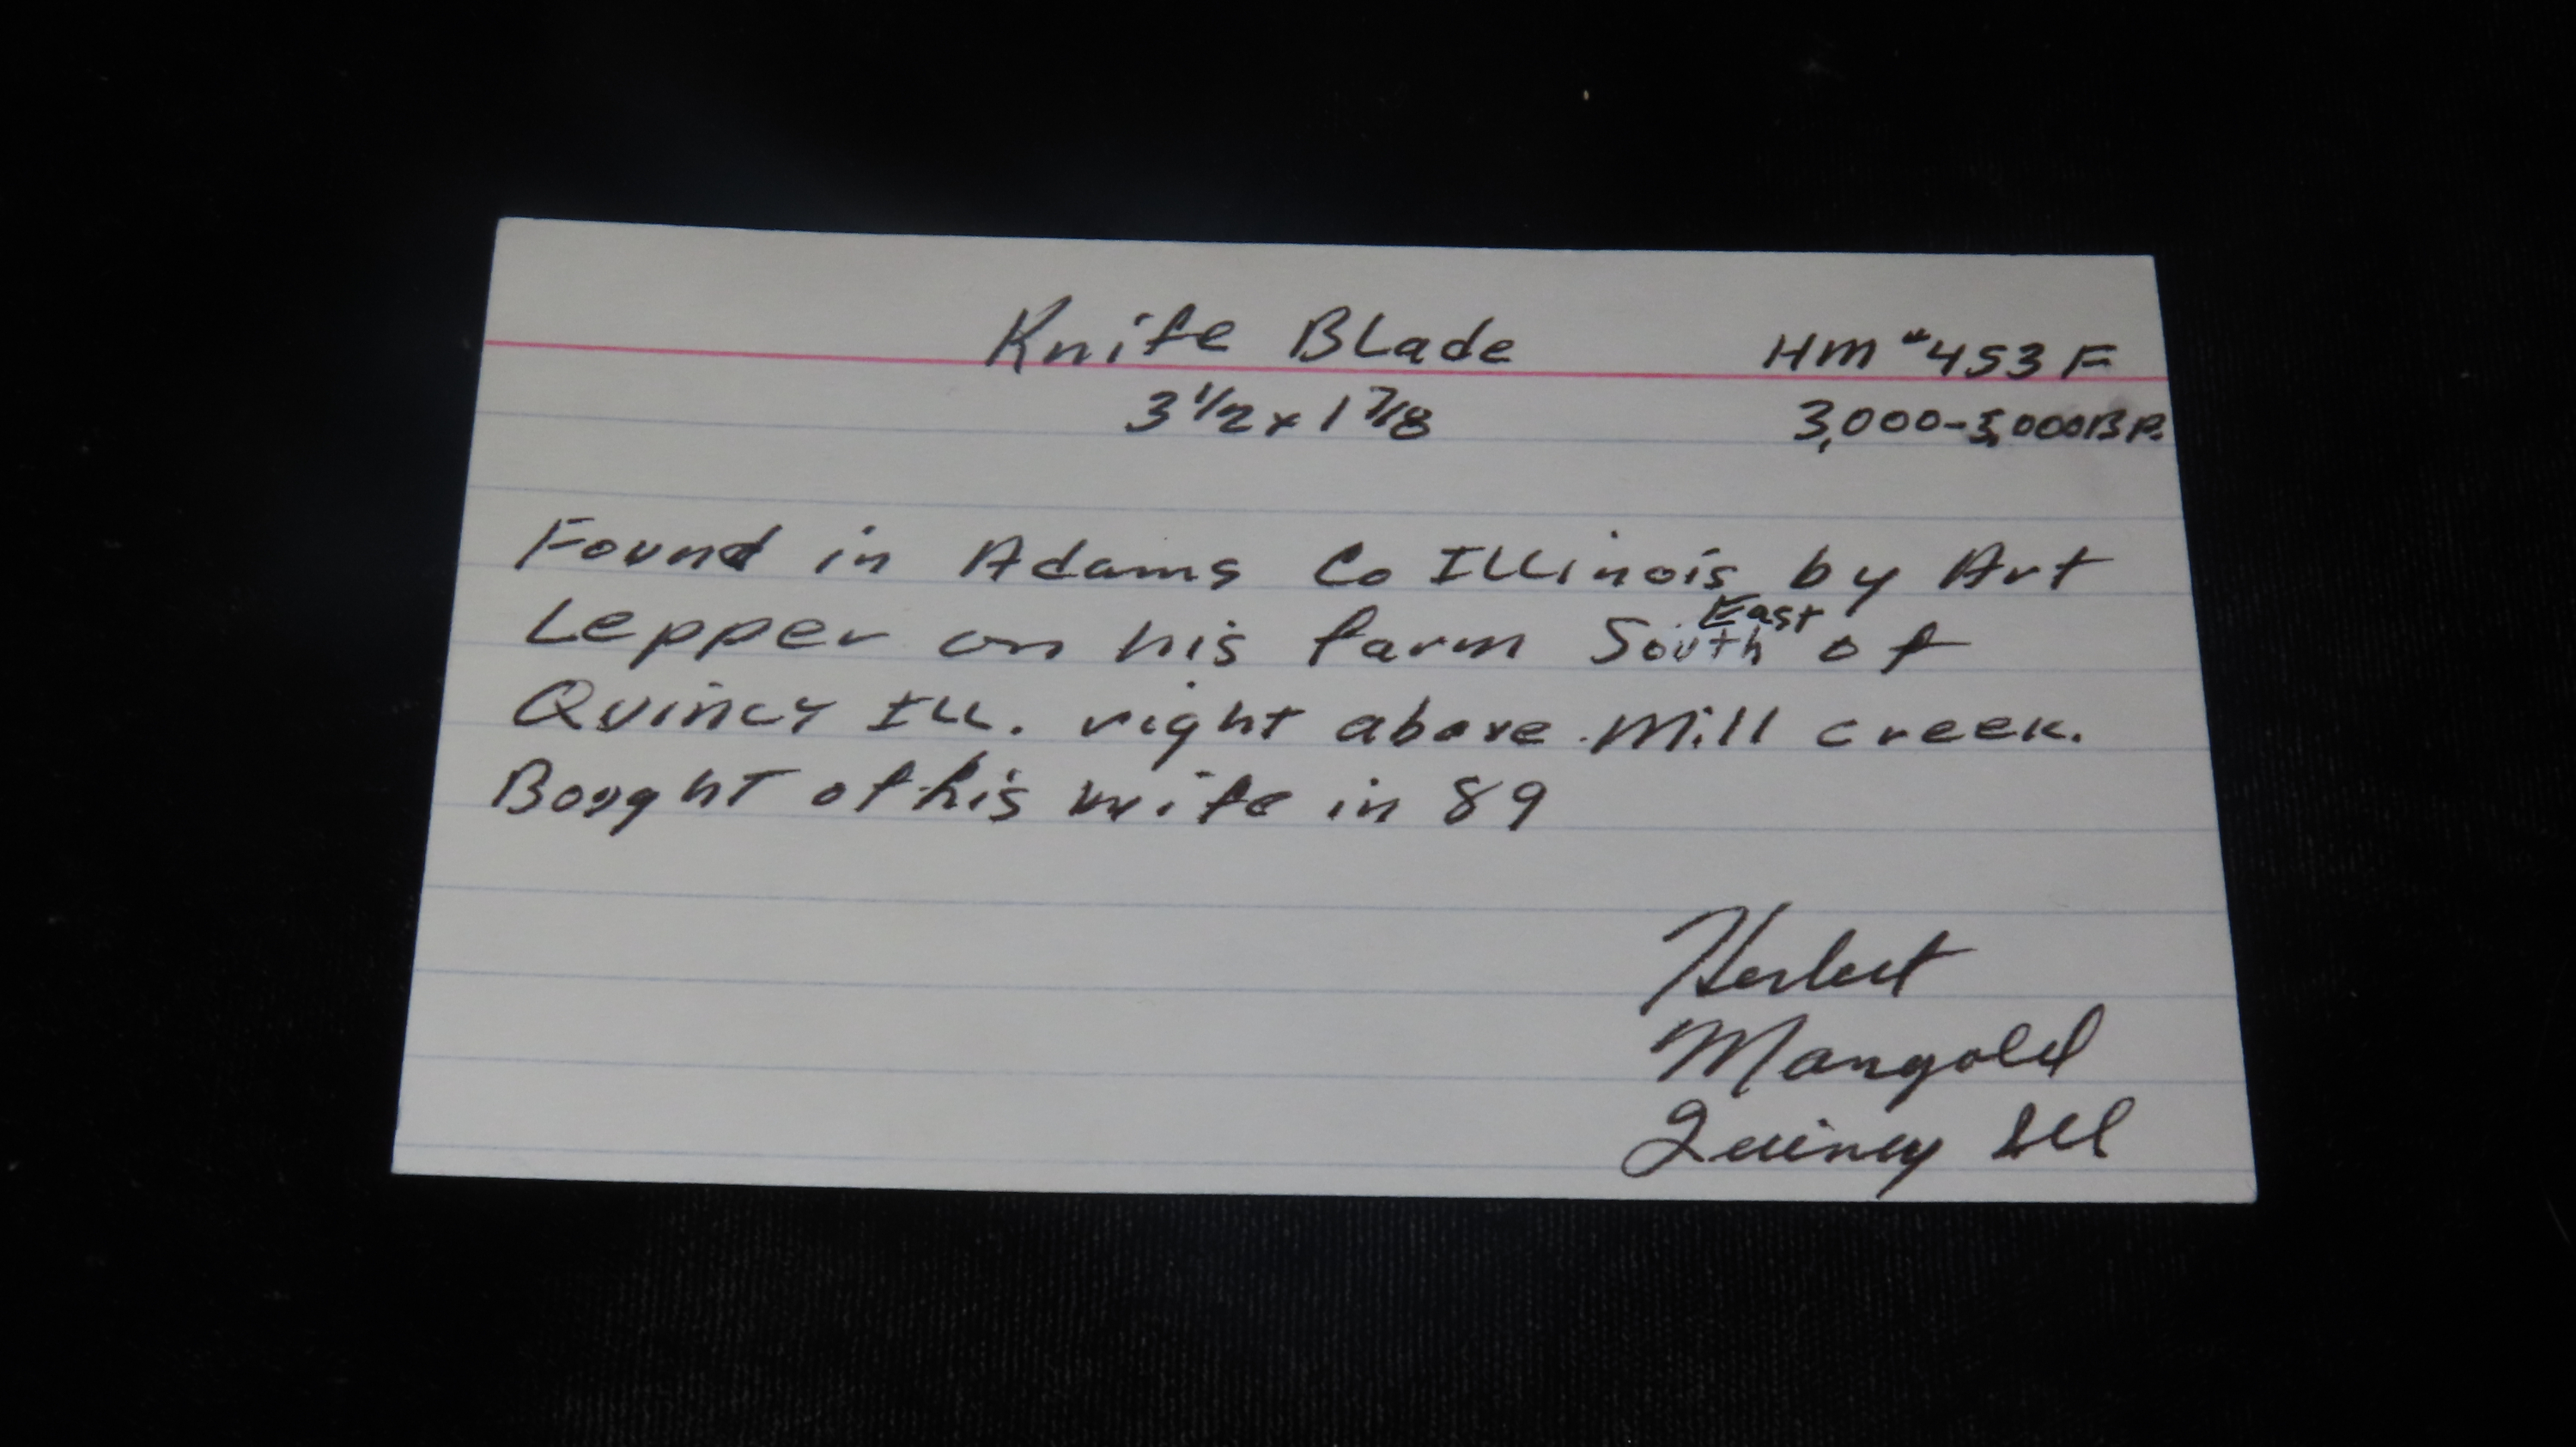 Knife Blade HM #453 F
3 1/2 x 1 7/8 3,000-5,000 B.P.
Found in Adams Co Illinois by Art
Lepper on his farm South East of
Quincy Ill. right above Mill creek.
Bought of his wife in 89
Herbert
Mangold
Quincy Ill